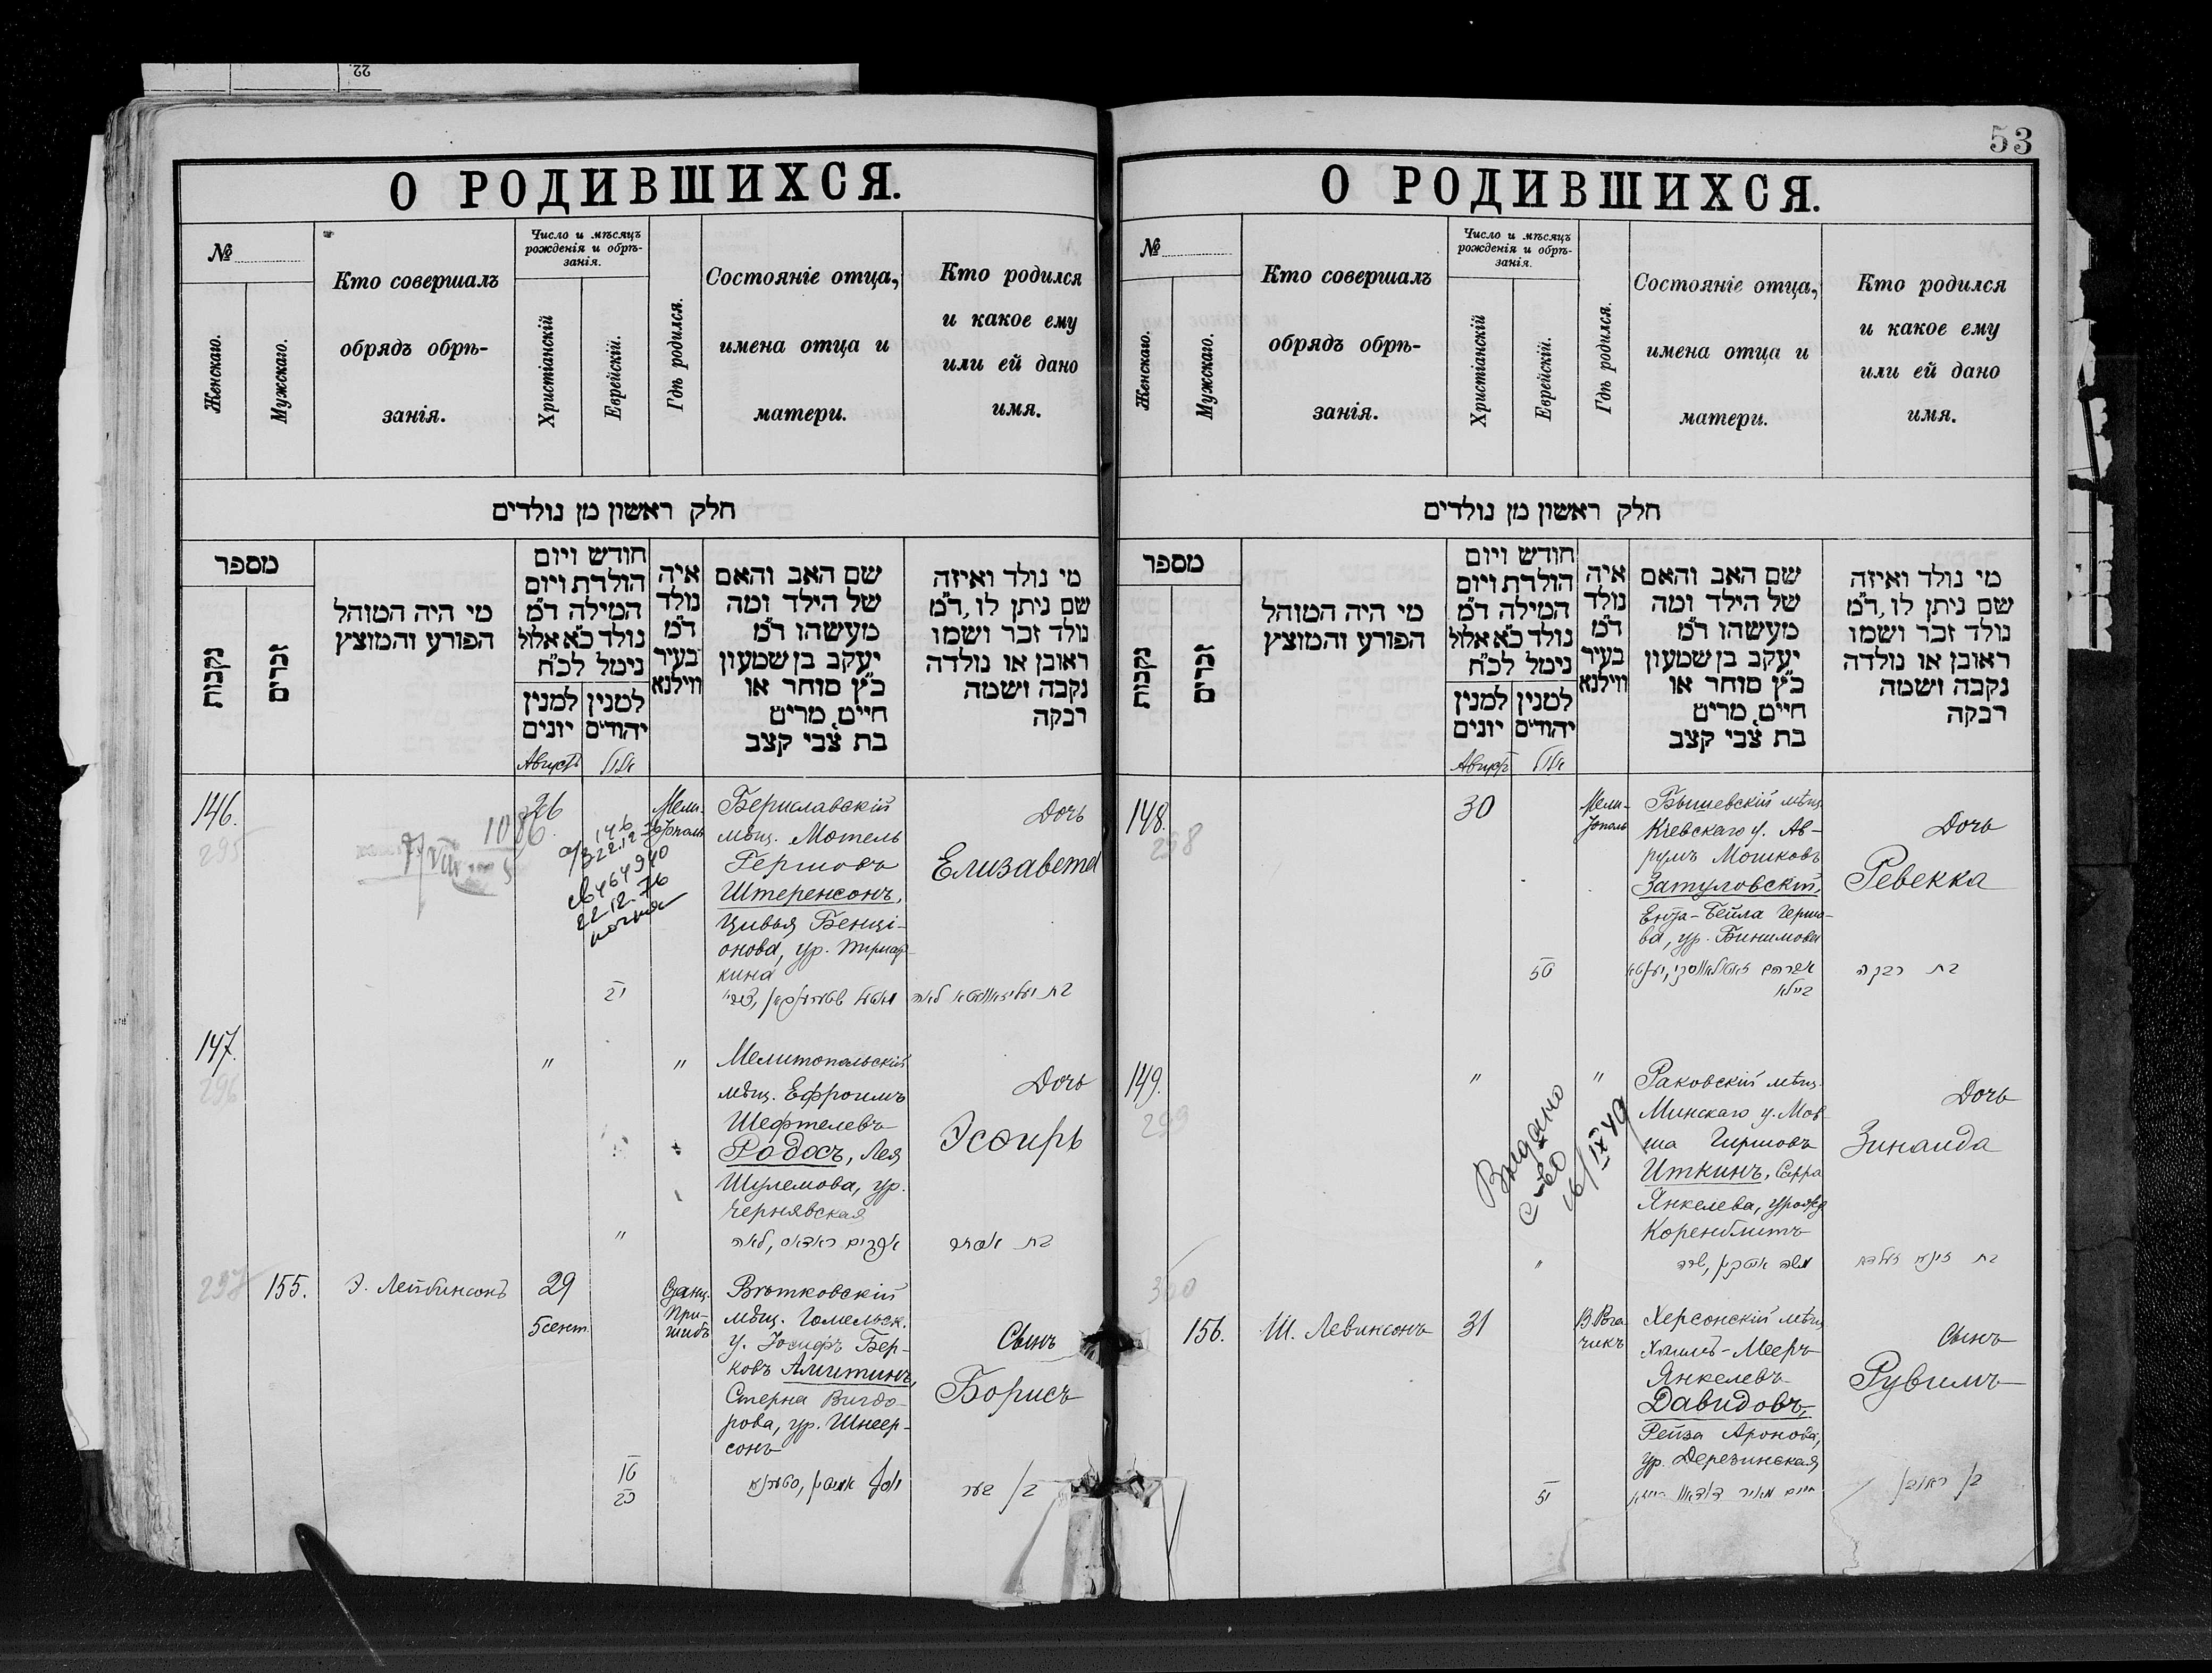 22.
53
О РОДИВШИХСЯ.
№
Женскаго.
Мужскаго.
Кто совершалъ
обрядъ обрѣ-
занія.
Число и мѣсяцъ
рожденія и обрѣ-
занія.
Христіанскій
Еврейскій.
Гдѣ родился.
Состояніе отца,
имена отца и
матери.
Кто родился
и какое ему
или ей дано
имя.
חלק ראשון מן נולדים
מספר
נקבות
זכרים
מי היה המוהל
הפורע והמוצץ
חודש ויום
הולדת ויום
המילה ד״מ
נולד כ״א אלול
נימל לכ״ח
למנין
יונים
למנין
יהודים
איה
נולד
ד״מ
בעיר
ווילנא
שם האב והאם
של הילד ומה
מעשהו ד״מ
יעקב בן שמעון
כ״ץ סוחר או
חייט, מרים
בת צבי קצב
מי נולד ואיזה
שם ניתן לו, ד״מ
נולד זכר ושמו
ראובן או נולדה
נקבה ושמה
רבקה
Августъ
אלול
146.
295
1086
26
146
22.12.76
Мели-
тополь
Бериславскій
мѣщ. Мотель
Гершовъ
Штеренсонъ,
Цивья Бенці-
онова, ур.
кина
Дочь
Елизавета
147.
296
"
"
Мелитопольскій
мѣщ. Ефроимъ
Шефтелевъ
Родосъ, Лея
Шулемова, ур.
Чернявская
Дочь
Эсѳирь
"
אפרים ראדאס, לאה
בת אסתר
297
155.
Э. Лейбинсонъ
29
5 сент.
Станц.
При-
шибъ
Вѣтковскій
мѣщ. Гомельск.
у. Іосифъ Бер-
ковъ Амитинъ,
Стерна Вигдо-
рова, ур. Шнеер-
сонъ
Сынъ
Борисъ
О РОДИВШИХСЯ.
№
Женскаго.
Мужскаго.
Кто совершалъ
обрядъ обрѣ-
занія.
Число и мѣсяцъ
рожденія и обрѣ-
занія.
Христіанскій
Еврейскій.
Гдѣ родился.
Состояніе отца,
имена отца и
матери.
Кто родился
и какое ему
или ей дано
имя.
חלק ראשון מן נולדים
מספר
נקבות
זכרים
מי היה המוהל
הפורע והמוצץ
חודש ויום
הולדת ויום
המילה ד״מ
נולד כ״א אלול
נימל לכ״ח
למנין
יונים
למנין
יהודים
איה
נולד
ד״מ
בעיר
ווילנא
שם האב והאם
של הילד ומה
מעשהו ד״מ
יעקב בן שמעון
כ״ץ סוחר או
חייט, מרים
בת צבי קצב
מי נולד ואיזה
שם ניתן לו, ד״מ
נולד זכר ושמו
ראובן או נולדה
נקבה ושמה
רבקה
Августъ
אלול
148.
298
30
Мели-
тополь
Бышевскій мѣщ.
Кіевскаго у. Ав-
румъ Мошковъ
Затуловскій,
Ента-Бейла Гершо-
ва, ур. Бинимова
Дочь
Ревекка
בת רבקה
149.
299
"
"
Выдано
с-во
16/IX 49
Раковскій мѣщ.
Минскаго у. Мов-
ша Гиршовъ
Иткинъ, Сарра
Янкелева, урожд.
Коренблитъ
Дочь
Зинаида
"
משה איטקין, שרה
300
156.
Ш. Левинсонъ
31
В. Рога-
чикъ
Херсонскій мѣщ.
Хаимъ-Мееръ
Янкелевъ
Давидовъ,
Рейза Аронова,
ур. Дерезинская
Сынъ
Рувимъ
בן ראובן